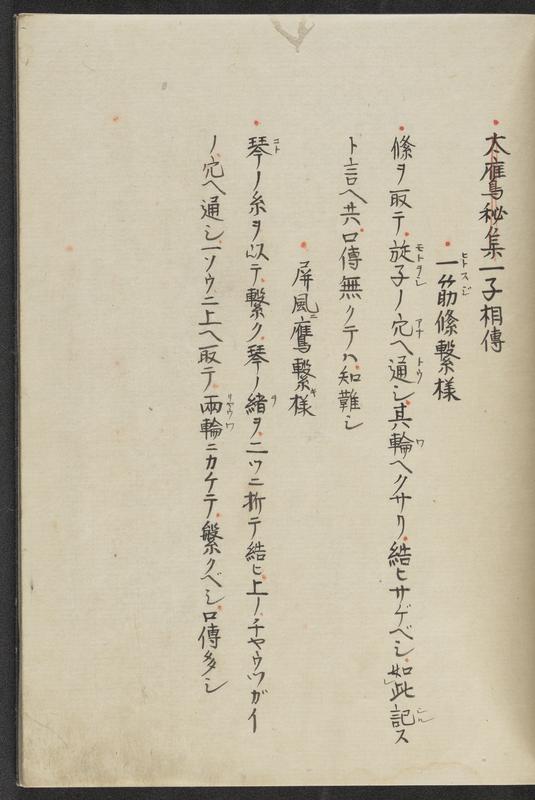 大鷹秘集一子相傳
一筋條繋様
條ヲ取テ旋子ノ穴ヘ通シ其輪ヘクサリ結ヒサゲベシ如此記ス
ト言ヘ共口傳無クテハ知難シ
屏風ニ鷹繋キ様
琴ノ糸ヲ以テ繋ク琴ノ緒ヲ二ツニ折テ結ヒ上ノチヤウツガイ
ノ穴ヘ通シ一ソウニ上ヘ取テ兩輪ニカケテ繋クベシ口傳多シ